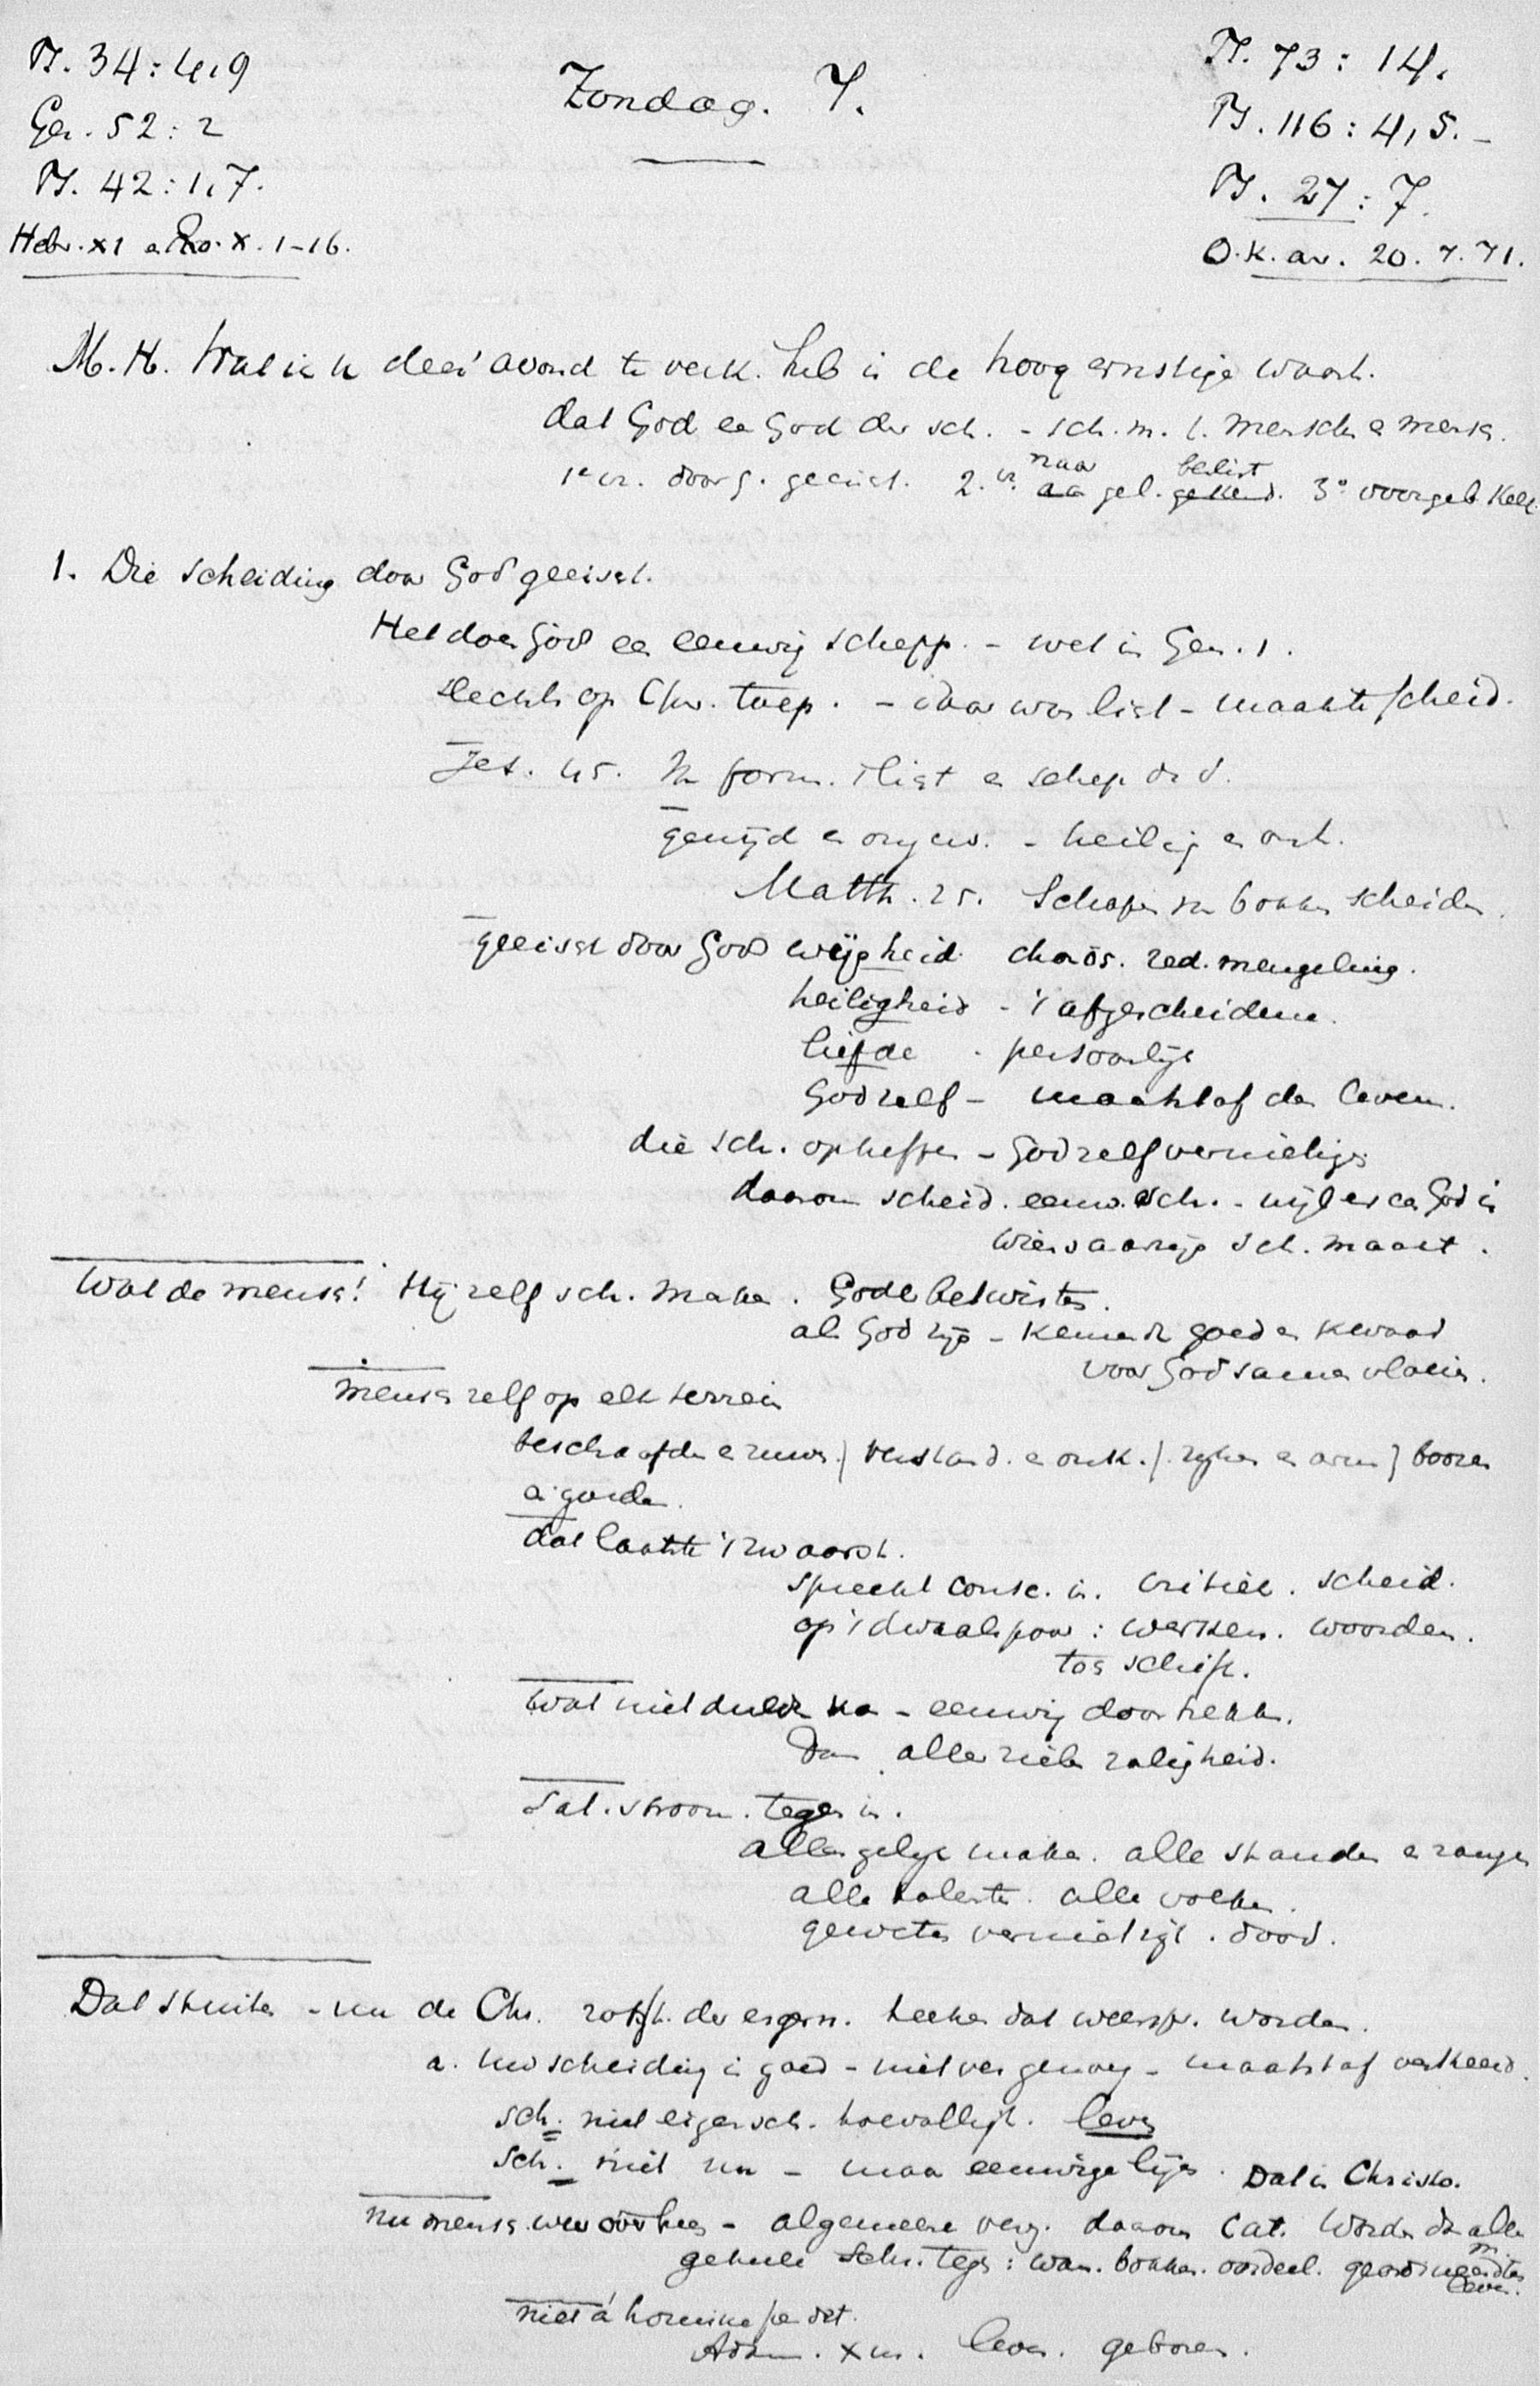 Ps. 34:4,9
Gez. 52:2
Ps. 42:1,7.
Hebr. XI a Ro. X. 1-16.
Zondag. 7.
Ps. 73: 14.
Ps. 116: 4, 5. -
Ps. 27: 7.
O.K. av. 20. 7. 71.
M.H. Wat ik u dees' avond te verk. heb is de hoog ernstige waarh.
dat God ee God der sch. - sch. m. t. mensch e mensch.
1e w. door G. geeischt. 2. w. naar gel. beslist 3° voorgeb.
1. Die scheiding door God geeischt.
Het doen God ee eeuwig schepp. - wet in Gen. 1.
slechts op toep. - daar was licht - maakte scheid.
Jes. 45. Ik form. 't ligt e schep de d.
gewijd e ongew. - heilig e onh.
Matth. 25. Schapen va bokken scheiden.
geeischt door God wijsheid chaos. red. mengeling.
heiligheid - 't afgescheidene.
liefde - persoonlijk
God zelf - maatstaf des levens.
die sch. opheffen - God zelf vernietigen
daarom scheid. eeuw. sch. - wijl er ee God is
wiens aanzijn sch. maakt.
Wat de mensch! Hij zelf sch. maken. Gode betwisten.
als God zijn - kennende goed en kwaad
voor God samen vloeien.
mensch zelf op elk terrein
beschaafden e ruwe / verstand. e onk. / rijken e arm / boozen
e goeden.
dat laatste 't zwaarst.
spreekt consc. in. critiek. scheid.
op 't dwaalspoor: werken. woorden.
Wat niet dulden ka - eeuwig doortrekken.
Dan alle ziele zaligheid.
Sat. stroom. tegen in.
allen gelijk maken. alle standen e rangen
alle talenten. alle volken.
geweten vernietigt. dood.
Dat stuiten - nu de Chr. rots der ergern. teeken dat weerspr. worden.
a. Uw scheiding is goed - niet ver genoeg - maatstaf verkeerd.
sch. niet eigensch. toevallige. leven
sch. niet nu - maar eeuwiglijk. Dat is Christus.
nu mensch weer - algemeene verz. daarom Cat. Worden dan alle
geheele Schr. tegen: wan. bokken. oordeel.
Adam. X us. leven. geboren.